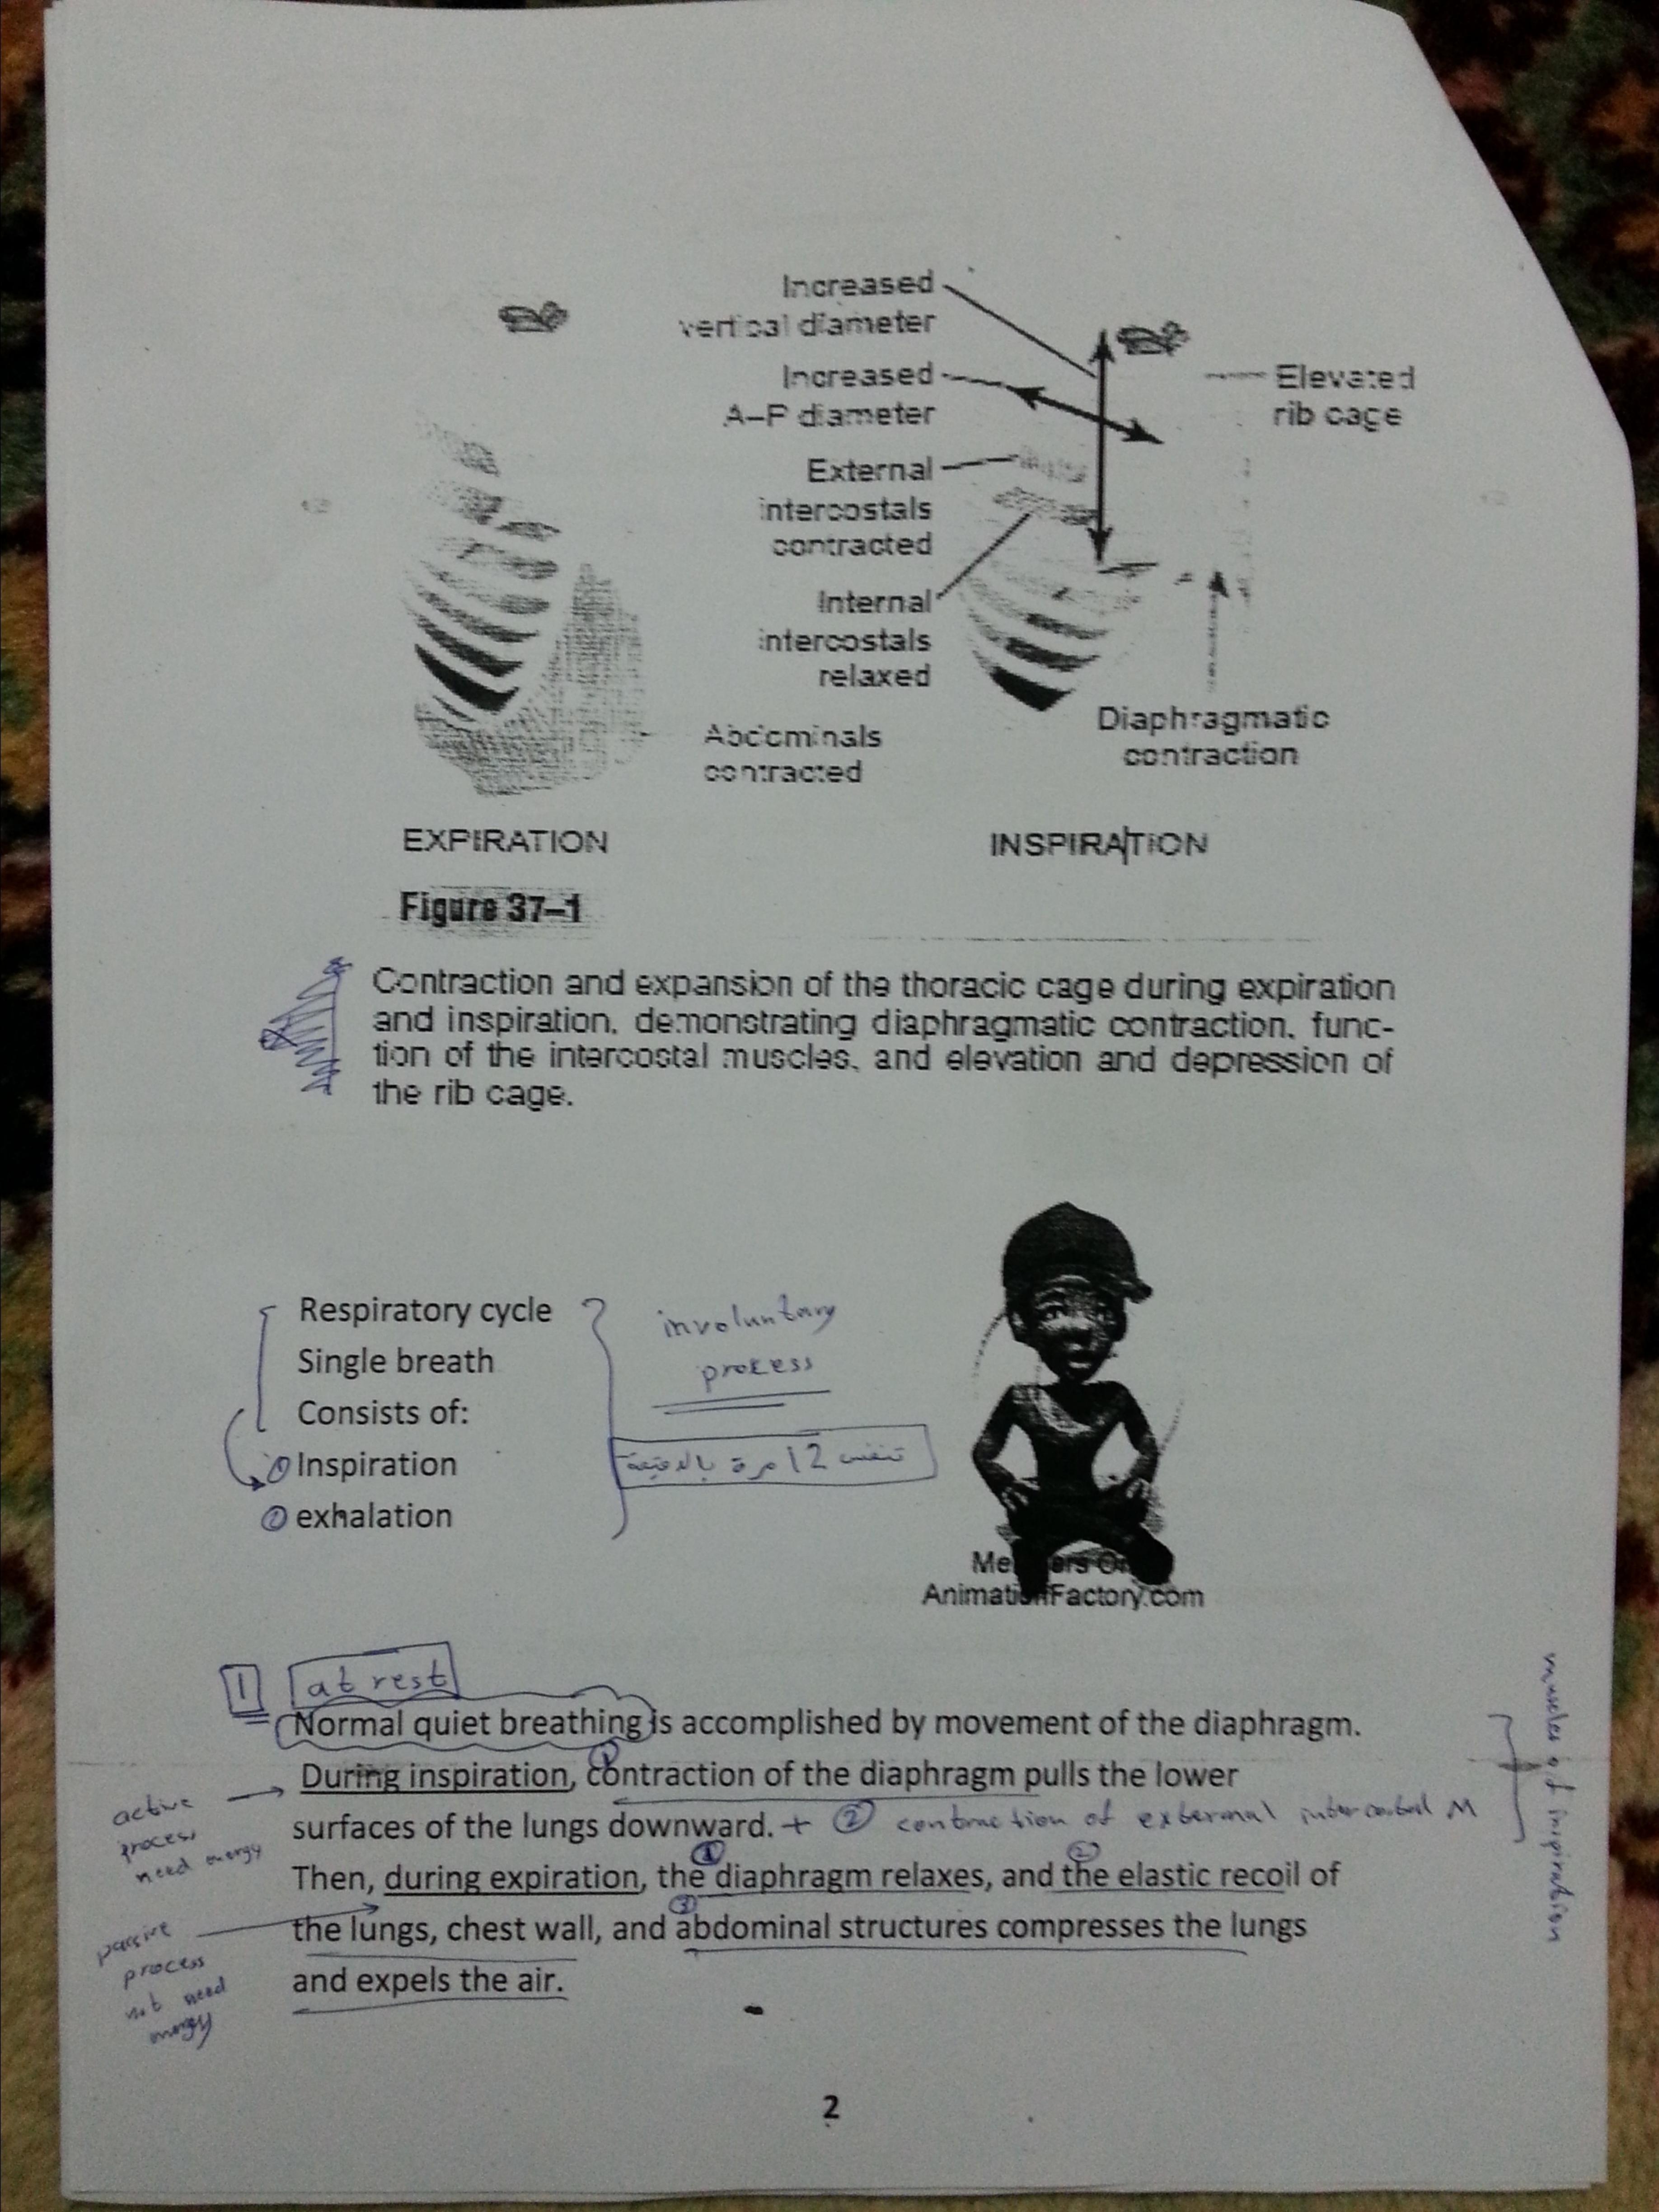 Increased
vertical diameter
Increased
A–P diameter
Elevated
rib cage
External
intercostals
contracted
Internal
intercostals
relaxed
Abdominals
contracted
Diaphragmatic
contraction
EXPIRATION
INSPIRATION
Figure 37–1
Contraction and expansion of the thoracic cage during expiration
and inspiration, demonstrating diaphragmatic contraction, func-
tion of the intercostal muscles, and elevation and depression of
the rib cage.
Respiratory cycle
Single breath
Consists of:
① Inspiration
② exhalation
involuntary
process
تنفس 12 مرة بالدقيقة
AnimationFactory.com
1 at rest
Normal quiet breathing is accomplished by movement of the diaphragm.
During inspiration, ① contraction of the diaphragm pulls the lower
surfaces of the lungs downward. + ② contraction of external intercostal M
Then, during expiration, the ① diaphragm relaxes, and ② the elastic recoil of
the lungs, chest wall, and ③ abdominal structures compresses the lungs
and expels the air.
active
process
need energy
passive
process
not need
energy
muscles of inspiration
2